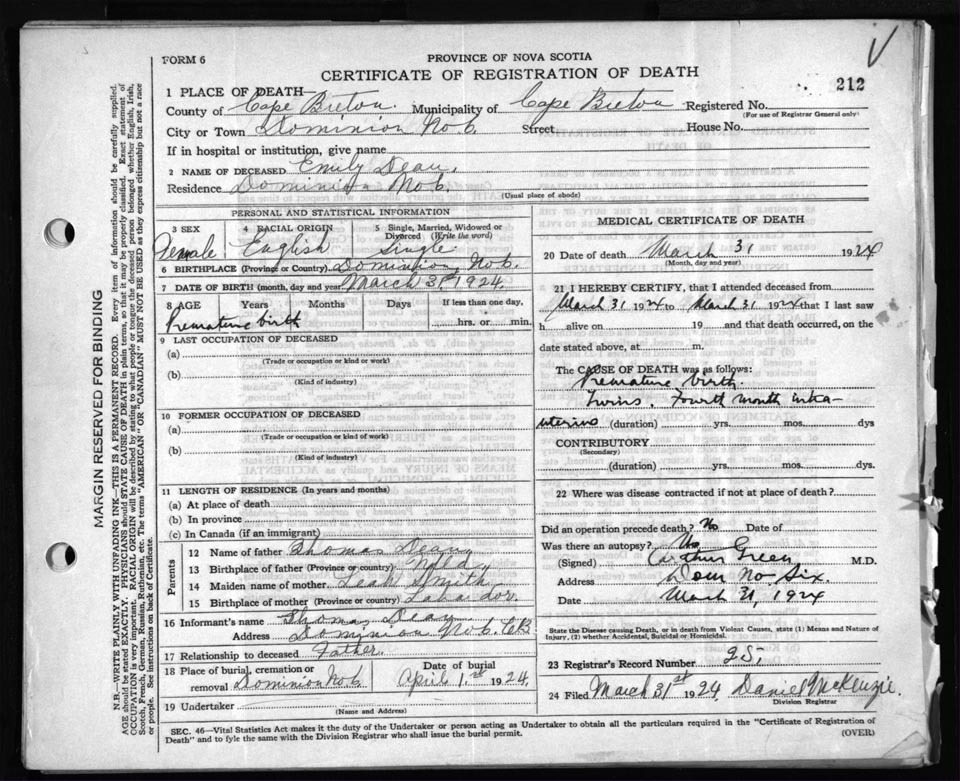 FORM 6
PROVINCE OF NOVA SCOTIA
CERTIFICATE OF REGISTRATION OF DEATH
212
1 PLACE OF DEATH
County of Cape Breton. Municipality of Cape Breton Registered No.
(For use of Registrar General only)
City or Town Dominion No 6. Street House No.
If in hospital or institution, give name
2 NAME OF DECEASED Emily Dean.
Residence Dominion No 6.
(Usual place of abode)
PERSONAL AND STATISTICAL INFORMATION
3 SEX 4 RACIAL ORIGIN 5 Single, Married, Widowed or Divorced (Write the word)
Female English Single
6 BIRTHPLACE (Province or Country) Dominion No 6.
7 DATE OF BIRTH (month, day and year) March 31st 1924.
8 AGE Years Months Days If less than one day,
Premature birth hrs. or min.
9 LAST OCCUPATION OF DECEASED
(a)
(Trade or occupation or kind or work)
(b)
(Kind of industry)
10 FORMER OCCUPATION OF DECEASED
(a)
(Trade or occupation or kind or work)
(b)
(Kind of industry)
11 LENGTH OF RESIDENCE (In years and months)
(a) At place of death
(b) In province
(c) In Canada (if an immigrant)
Parents
12 Name of father Thomas Dean
13 Birthplace of father (Province or country) Nfld
14 Maiden name of mother Leah Smith
15 Birthplace of mother (Province or country) Labrador.
16 Informant's name Thomas Dean
Address Dominion No 6. CB
17 Relationship to deceased Father.
18 Place of burial, cremation or removal Dominion No 6. Date of burial April 1.st 1924.
19 Undertaker
(Name and Address)
MEDICAL CERTIFICATE OF DEATH
20 Date of death March 31 1924
(Month, day and year)
21 I HEREBY CERTIFY, that I attended deceased from
March 31 1924 to March 31 1924 that I last saw
h alive on 19 and that death occurred, on the
date stated above, at m.
The CAUSE OF DEATH was as follows:
Premature birth.
Twins. Fourth month intra-
uterine (duration) yrs. mos. dys
CONTRIBUTORY
(Secondary)
(duration) yrs. mos. dys.
22 Where was disease contracted if not at place of death?
Did an operation precede death? No Date of
Was there an autopsy? No
(Signed) Arthur Green M.D.
Address Dom No Six.
Date March 31, 1924
State the Disease causing Death, or in death from Violent Causes, state (1) Means and Nature of Injury, (2) whether Accidental, Suicidal or Homicidal.
23 Registrar's Record Number 28,
24 Filed March 31st 1924 Daniel McKenzie.
Division Registrar
SEC. 46—Vital Statistics Act makes it the duty of the Undertaker or person acting as Undertaker to obtain all the particulars required in the "Certificate of Registration of
Death" and to fyle the same with the Division Registrar who shall issue the burial permit. (OVER)
MARGIN RESERVED FOR BINDING
N.B.—WRITE PLAINLY WITH UNFADING INK—THIS IS A PERMANENT RECORD. Every item of information should be carefully supplied.
AGE should be stated EXACTLY. PHYSICIANS should STATE CAUSE OF DEATH in plain terms, so that it may be properly classified. Exact statement of
OCCUPATION is very important. RACIAL ORIGIN will be described by stating to what people or tongue the deceased person belonged whether English, Irish,
Scotch, French, German, Russian, Ruthenian, etc. The terms "AMERICAN" OR "CANADIAN" MUST NOT BE USED as they express citizenship but not a race
or people. See instructions on back of Certificate.